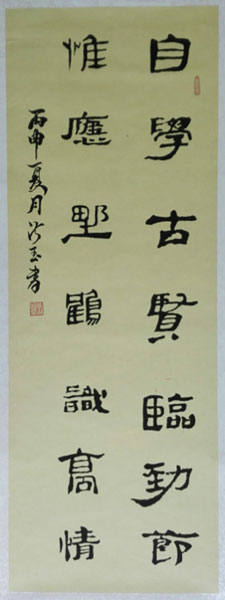 自學古賢臨勁節
惟應野鶴識高情
丙申夏月沙玉書